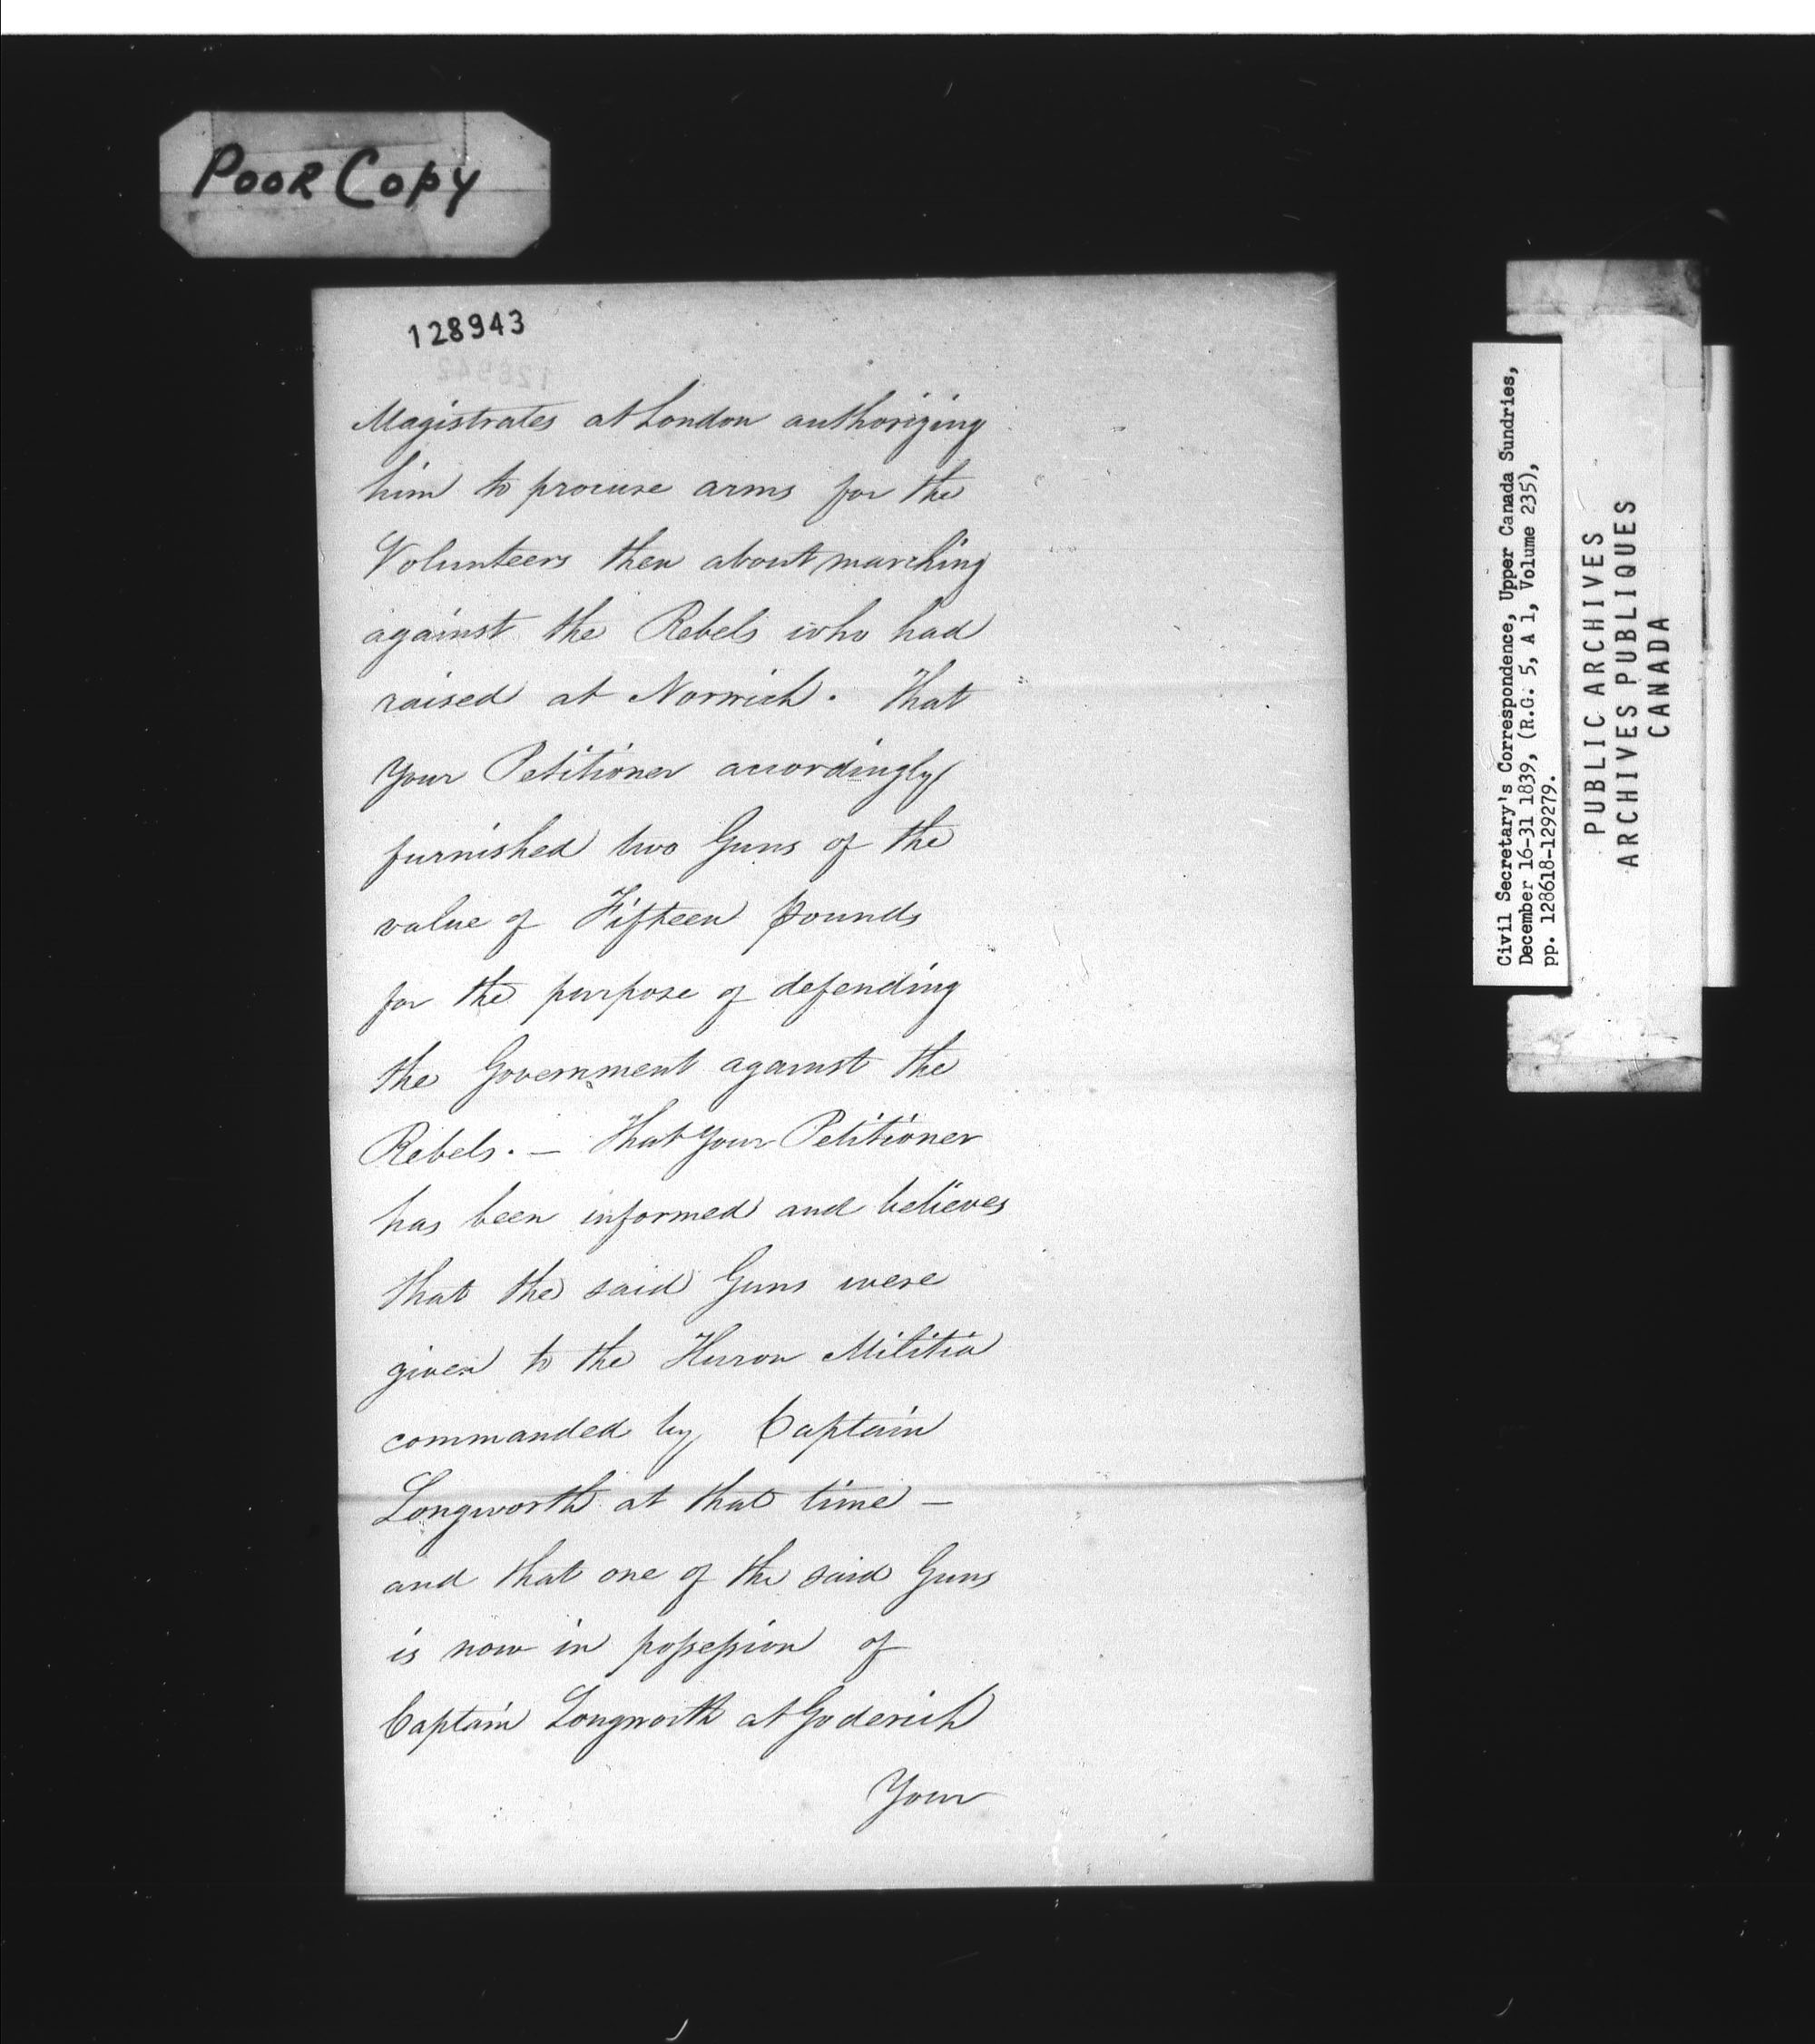 POOR COPY
128943
128942
Magistrates at London authorizing
him to procure arms for the
Volunteers then about marching
against the Rebels who had
raised at Norwich. That
your Petitioner accordingly
furnished two Guns of the
value of Fifteen pounds
for the purpose of defending
the Government against the
Rebels. — That your Petitioner
has been informed and believes
that the said Guns were
given to the Huron Militia
commanded by Captain
Longworth at that time —
and that one of the said Guns
is now in possession of
Captain Longworth at Goderich
Your
Civil Secretary's Correspondence, Upper Canada Sundries,
December 16-31 1839, (R.G. 5, A 1, Volume 235),
pp. 128618-129279.
PUBLIC ARCHIVES
ARCHIVES PUBLIQUES
CANADA